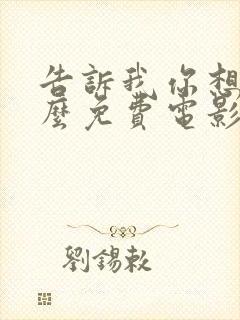 告訴我你想
麼免費電影
劉錫敕